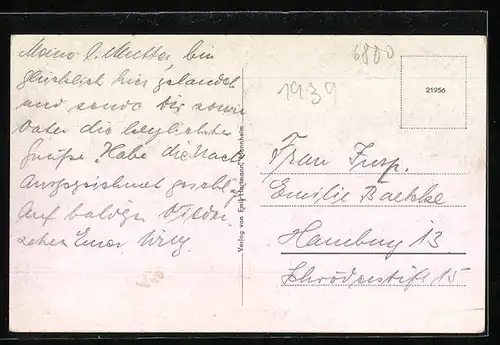 Meine l. Mutter, bin
glücklich hier gelandet
und sende Dir sowie
Vater die herzlichsten
Grüße. Habe die Nacht
Ausgezeichnet
Auf baldiges Wieder-
sehen Euer
Verlag von Emil Hartmann, Mannheim
6800
1939
21956
Frau Insp.
Emilie Baehke
Hamburg 13.
Schröderstift 15